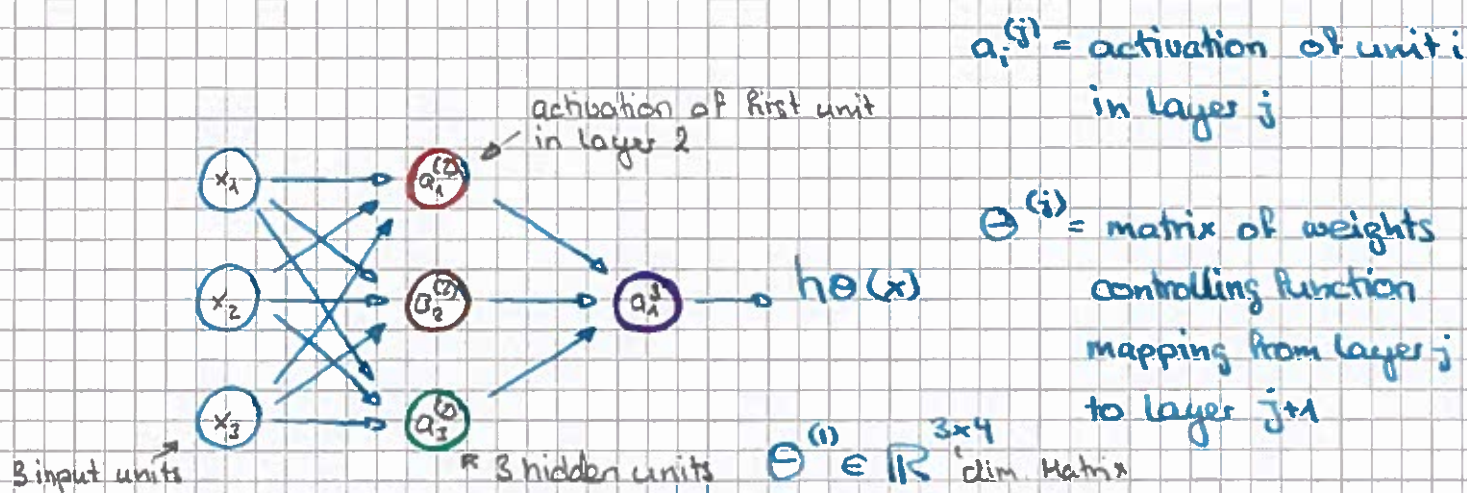 a_i^(j) = activation of unit i
in layer j
activation of first unit
in layer 2
x_1
a_1^(2)
Θ^(j) = matrix of weights
controlling function
mapping from layer j
to layer j+1
x_2
a_2^(2)
a_1^3
hΘ(x)
x_3
a_3^(2)
3 input units
3 hidden units
Θ^(1) ∈ ℝ^3x4 dim. Matrix